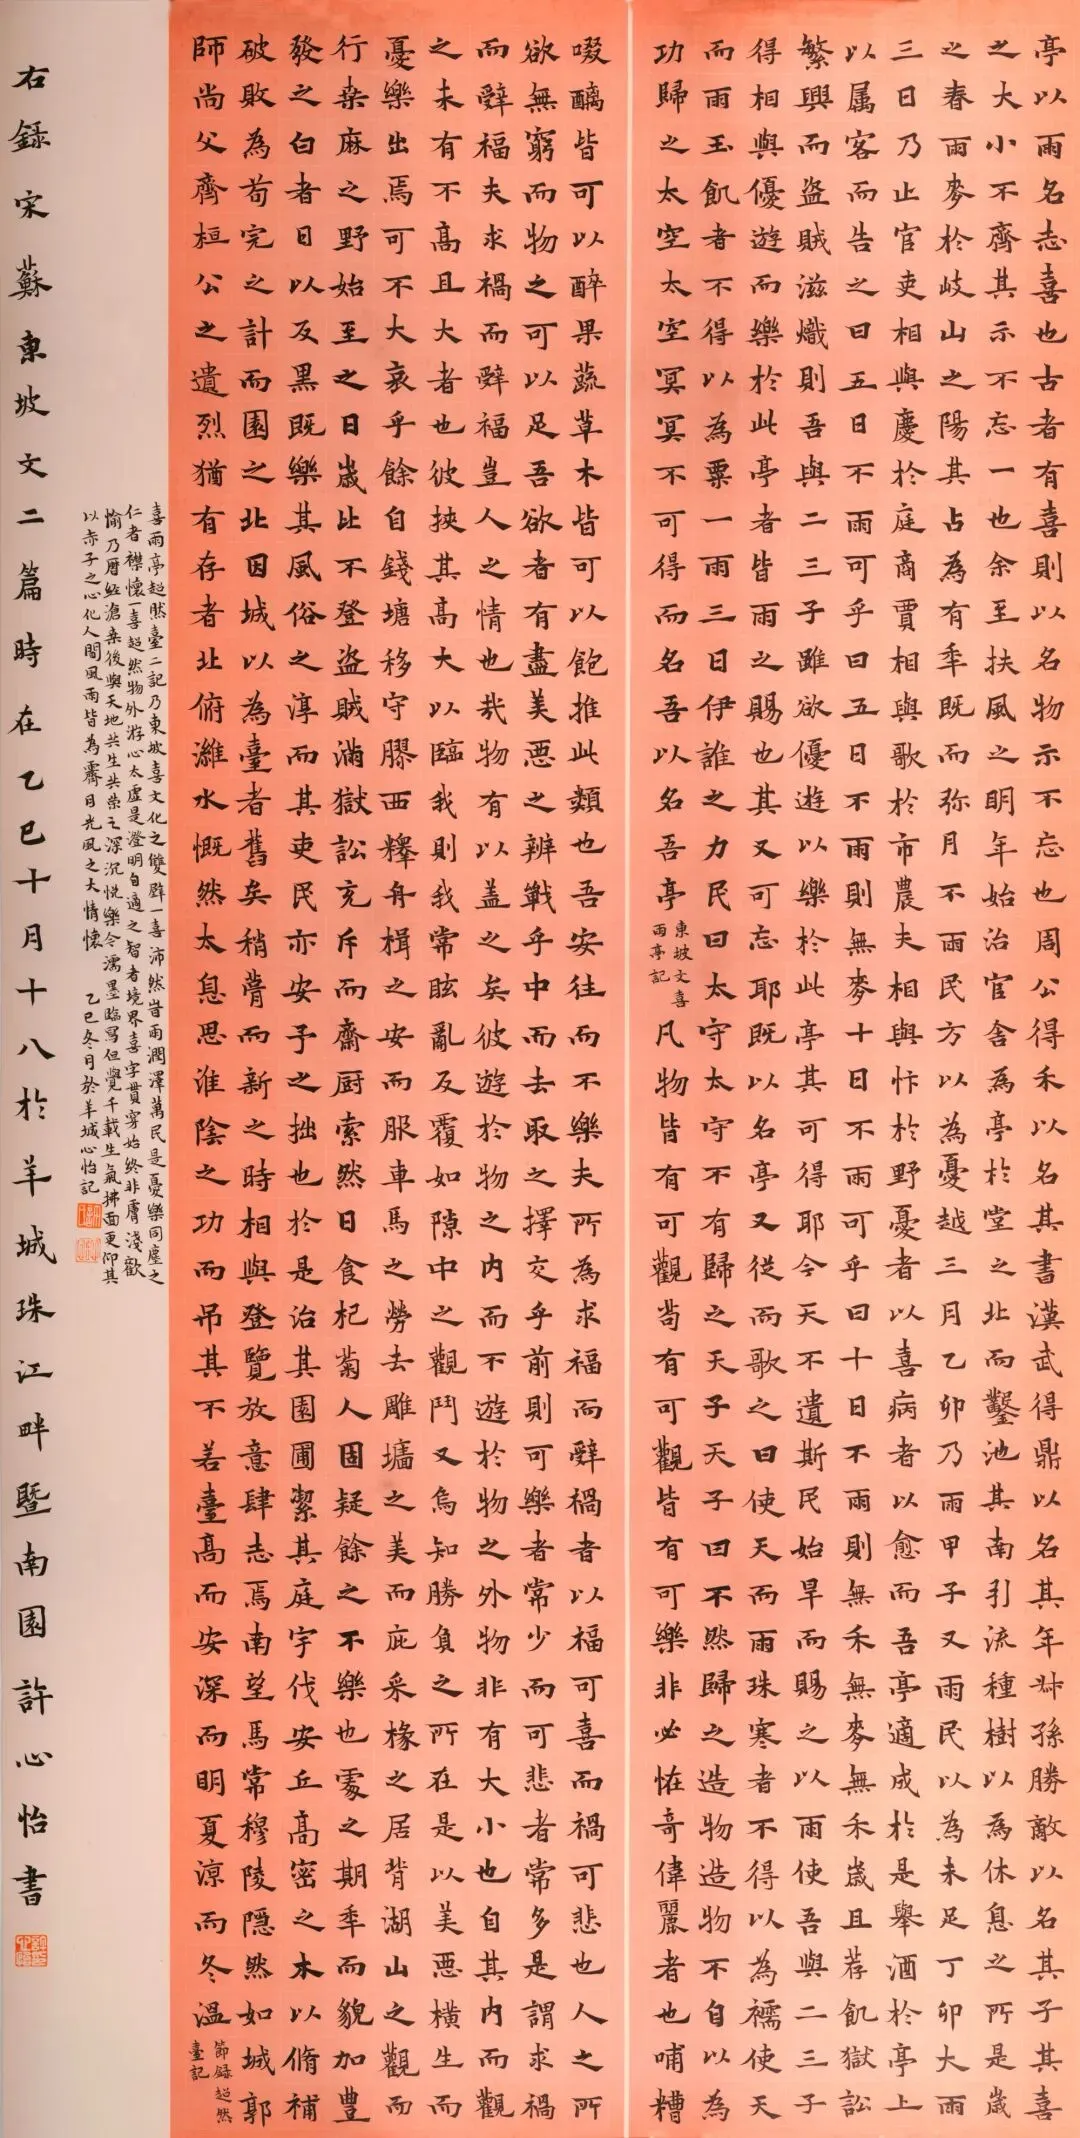 亭以雨名志喜也古者有喜則以名物示不忘也周公得禾以名其書漢武得鼎以名其年叔孫勝敵以名其子其喜
之大小不齊其示不忘一也余至扶風之明年始治官舍為亭於堂之北而鑿池其南引流種樹以為休息之所是歲
之春雨麥於岐山之陽其占為有年既而弥月不雨民方以為憂越三月乙卯乃雨甲子又雨民以為未足丁卯大雨
三日乃止官吏相與慶於庭商賈相與歌於市農夫相與忭於野憂者以喜病者以愈而吾亭適成於是舉酒於亭上
以属客而告之曰五日不雨可乎曰五日不雨則無麥十日不雨可乎曰十日不雨則無禾無麥無禾歲且荐飢獄訟
繁興而盗賊滋熾則吾與二三子雖欲優遊以樂於此亭其可得耶今天不遺斯民始旱而賜之以雨使吾與二三子
得相與優遊而樂於此亭者皆雨之賜也其又可忘耶既以名亭又從而歌之曰使天而雨珠寒者不得以為襦使天
而雨玉飢者不得以為粟一雨三日伊誰之力民曰太守太守不有歸之天子天子曰不然歸之造物造物不自以為
功歸之太空太空冥冥不可得而名吾以名吾亭東坡文喜雨亭記凡物皆有可觀苟有可觀皆有可樂非必怪奇偉麗者也哺糟
啜醨皆可以醉果蔬草木皆可以飽推此類也吾安往而不樂夫所為求福而辭禍者以福可喜而禍可悲也人之所
欲無窮而物之可以足吾欲者有盡美惡之辨戰乎中而去取之擇交乎前則可樂者常少而可悲者常多是謂求禍
而辭福夫求禍而辭福豈人之情也哉物有以盖之矣彼遊於物之内而不遊於物之外物非有大小也自其内而觀
之未有不高且大者也彼挾其高大以臨我則我常眩亂反覆如隙中之觀鬥又烏知勝負之所在是以美惡橫生而
憂樂出焉可不大哀乎餘自錢塘移守膠西釋舟楫之安而服車馬之勞去雕墻之美而庇采椽之居背湖山之觀而
行桑麻之野始至之日歲比不登盗賊滿獄訟充斥而齋厨索然日食杞菊人固疑餘之不樂也處之期年而貌加豐
發之白者日以反黑既樂其風俗之淳而其吏民亦安予之拙也於是治其園圃潔其庭宇伐安丘高密之木以脩補
破敗為苟完之計而園之北因城以為臺者舊矣稍葺而新之時相與登覽放意肆志焉南望馬常穆陵隱然如城郭
師尚父齊桓公之遺烈猶有存者北俯濰水慨然太息思淮陰之功而吊其不若臺高而安深而明夏涼而冬溫節録超然臺記
喜雨亭超然臺二記乃東坡喜文化之雙壁一喜沛然甘雨潤澤萬民是憂樂同塵之
仁者襟懷一喜超然物外游心太虛是澄明自適之智者境界喜字貫穿始終非膚淺歡
愉乃曆經滄桑後與天地共生共榮之深沉悦樂今濡墨臨寫但覺千載生氣拂面更仰其
以赤子之心化人間風雨皆為霽月光風之大情懷 乙巳冬月於羊城心怡記
右録宋蘇東坡文二篇時在乙巳十月十八於羊城珠江畔暨南園許心怡書